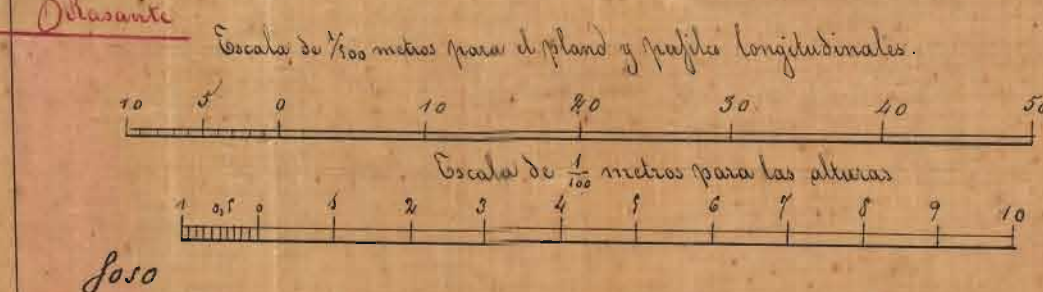 Rasante
Escala de 1/500 metros para el plano y perfiles longitudinales.
10 5 0 10 20 30 40 50
Escala de 1/100 metros para las alturas
1 0,5 0 1 2 3 4 5 6 7 8 9 10
foso